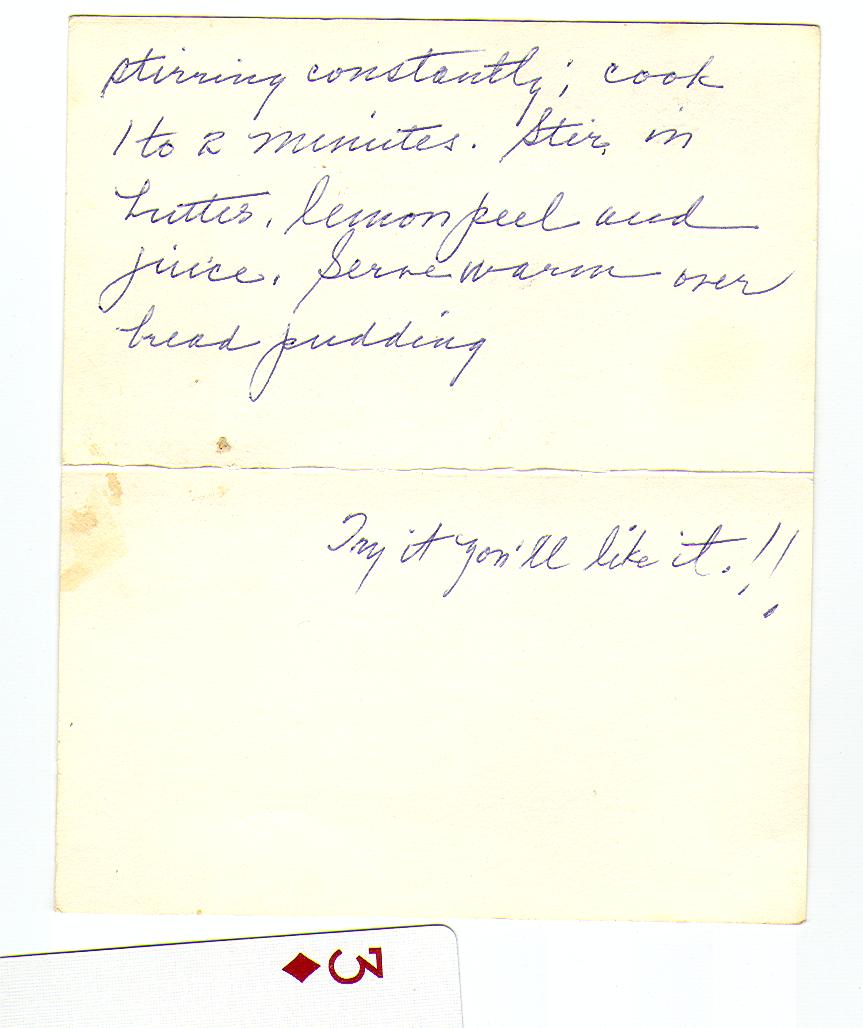 stirring constantly; cook
1 to 2 minutes. Stir in
butter, lemon peel and
juice. Serve warm over
bread pudding
Try it you'll like it.!!
3